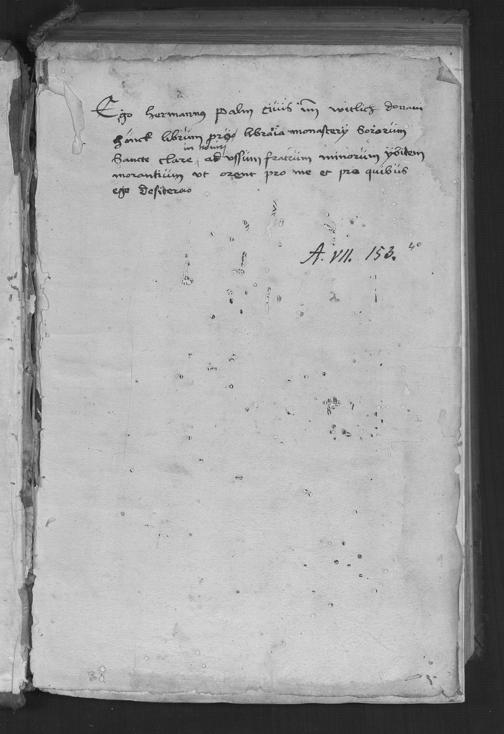 Ego hermannus palm civis in witlich donavi
hunck librum pro libraria monastery Sororum
in novis
Sancte Clare ad ussum fratrum minorum ybitem
morantium ut orent pro me et pro quibus
ego desidero
A. VII. 153. 4o